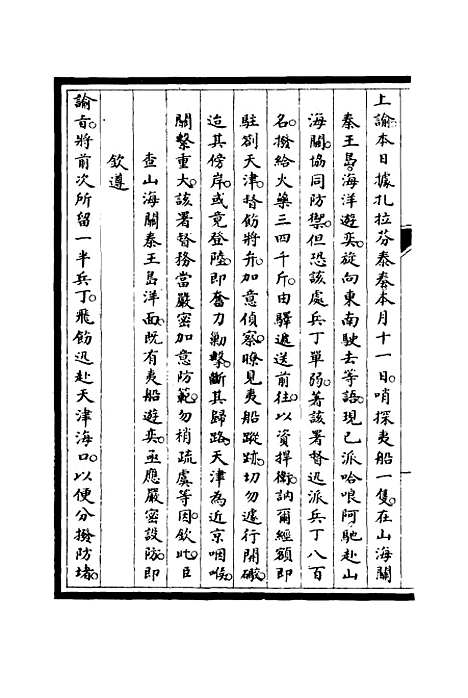 上諭本日據扎拉芬泰奏本月十一日哨探夷船一隻在山海關
秦王島海洋遊奕旋向東南駛去等語現已派哈哴阿馳赴山
海關協同防禦但恐該處兵丁單弱著該署督迅派兵丁八百
名撥給火藥三四千斤由驛遞送前往以資捍衛訥爾經額即
駐劄天津督飭將弁加意偵察瞭見夷船蹤跡切勿遽行開礮
迨其傍岸或竟登陸即奮力勦擊斷其歸路天津為近京咽喉
關繫重大該署督務當嚴密加意防範勿稍疏虞等因欽此臣
查山海關秦王島洋面既有夷船遊奕亟應嚴密設防即
欽遵
諭旨將前次所留一半兵丁飛飭迅赴天津海口以便分撥防堵